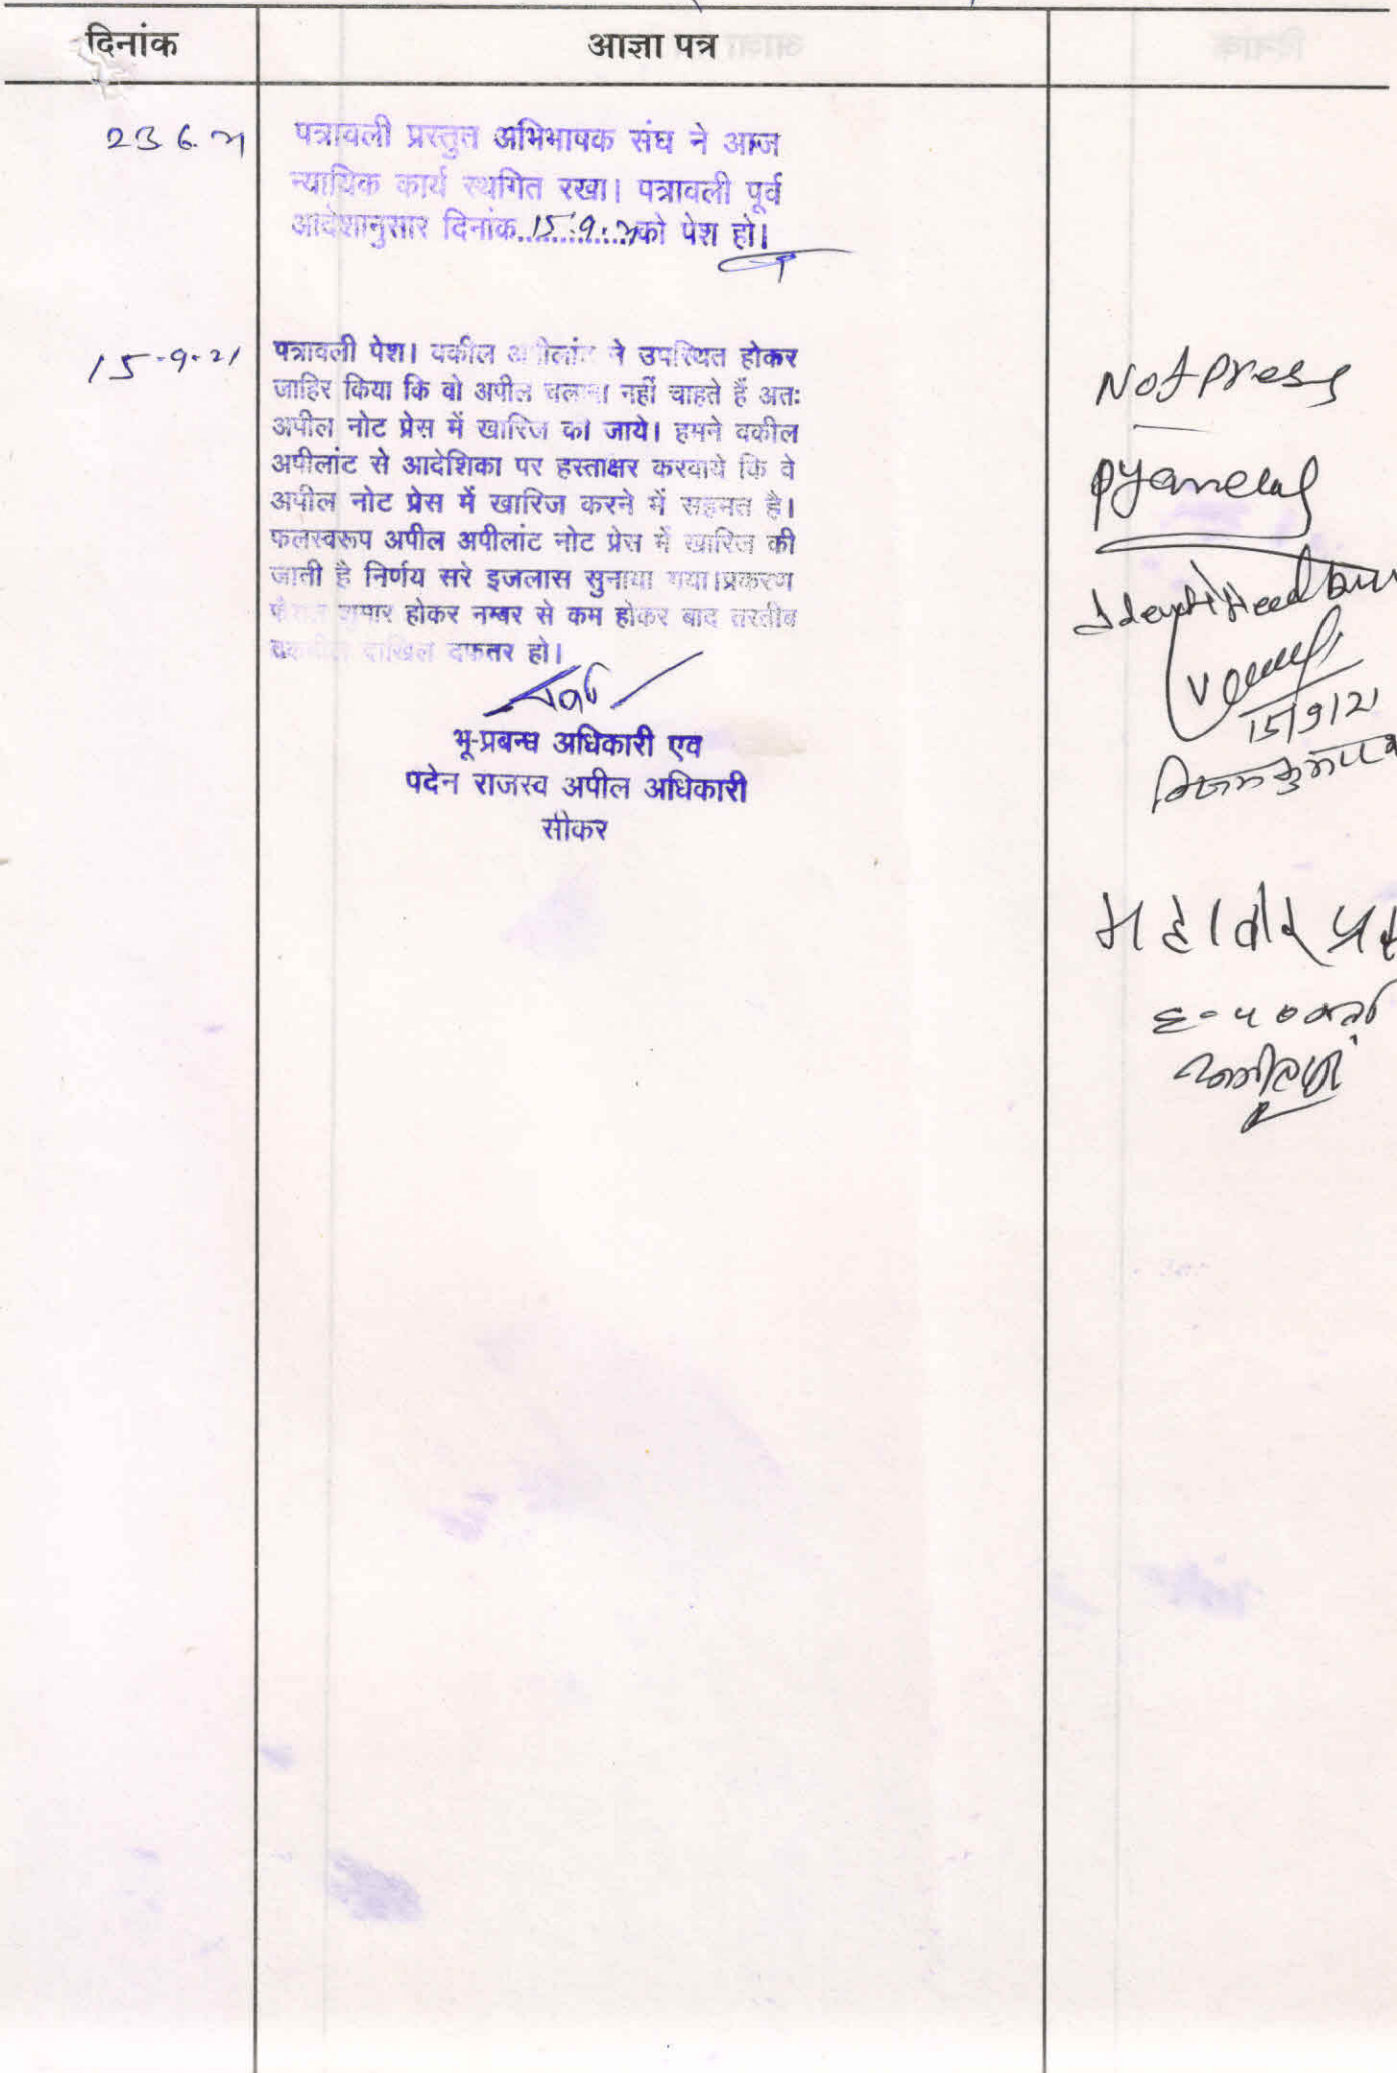 दिनांक
आज्ञा पत्र
23.6.21
पत्रावली प्रस्तुत अभिभाषक संघ ने आज
न्यायिक कार्य स्थगित रखा। पत्रावली पूर्व
आदेशानुसार दिनांक 15.9.21 को पेश हो।
15-9-21
पत्रावली पेश। वकील अपीलांट ने उपस्थित होकर
जाहिर किया कि वो अपील चलाना नहीं चाहते हैं अतः
अपील नोट प्रेस में खारिज की जाये। हमने वकील
अपीलांट से आदेशिका पर हस्ताक्षर करवाये कि वे
अपील नोट प्रेस में खारिज करने में सहमत है।
फलस्वरूप अपील अपीलांट नोट प्रेस में खारिज की
जाती है निर्णय सरे इजलास सुनाया गया।प्रकरण
फैसल शुमार होकर नम्बर से कम होकर बाद तरतीब
तकमील दाखिल दफतर हो।
भू-प्रबन्ध अधिकारी एव
पदेन राजस्व अपील अधिकारी
सीकर
Not press
15/9/21
महावीर